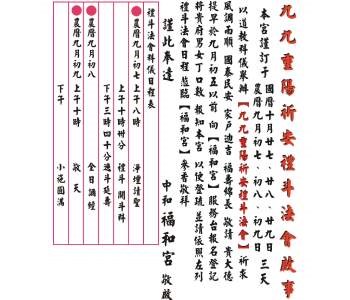 九九重陽祈安禮斗法會啟事
本宮謹訂于
國曆十月廿七、廿八、廿九日
農曆九月初七、初八、初九日
三天
以道教科儀舉辦【九九重陽祈安禮斗法會】祈求
風調雨順 國泰民安 家戶迪吉 福壽綿長 敬請 貴大德
提早於九月初五以前向【福和宮】服務台報名登記
將貴府男女丁口數 報知本宮 以便登疏 並請依照左列
禮斗法會日程 蒞臨【福和宮】參香敬拜
謹此奉達
中和福和宮 敬啟
禮斗法會科儀日程表
農曆九月初七 上午八時 淨壇請聖
上午十時卅分 禮斗 開斗科
下午三時四十分 過斗延壽
農曆九月初八 全日 誦經
農曆九月初九 上午十時 敬天
下午 小施圓滿